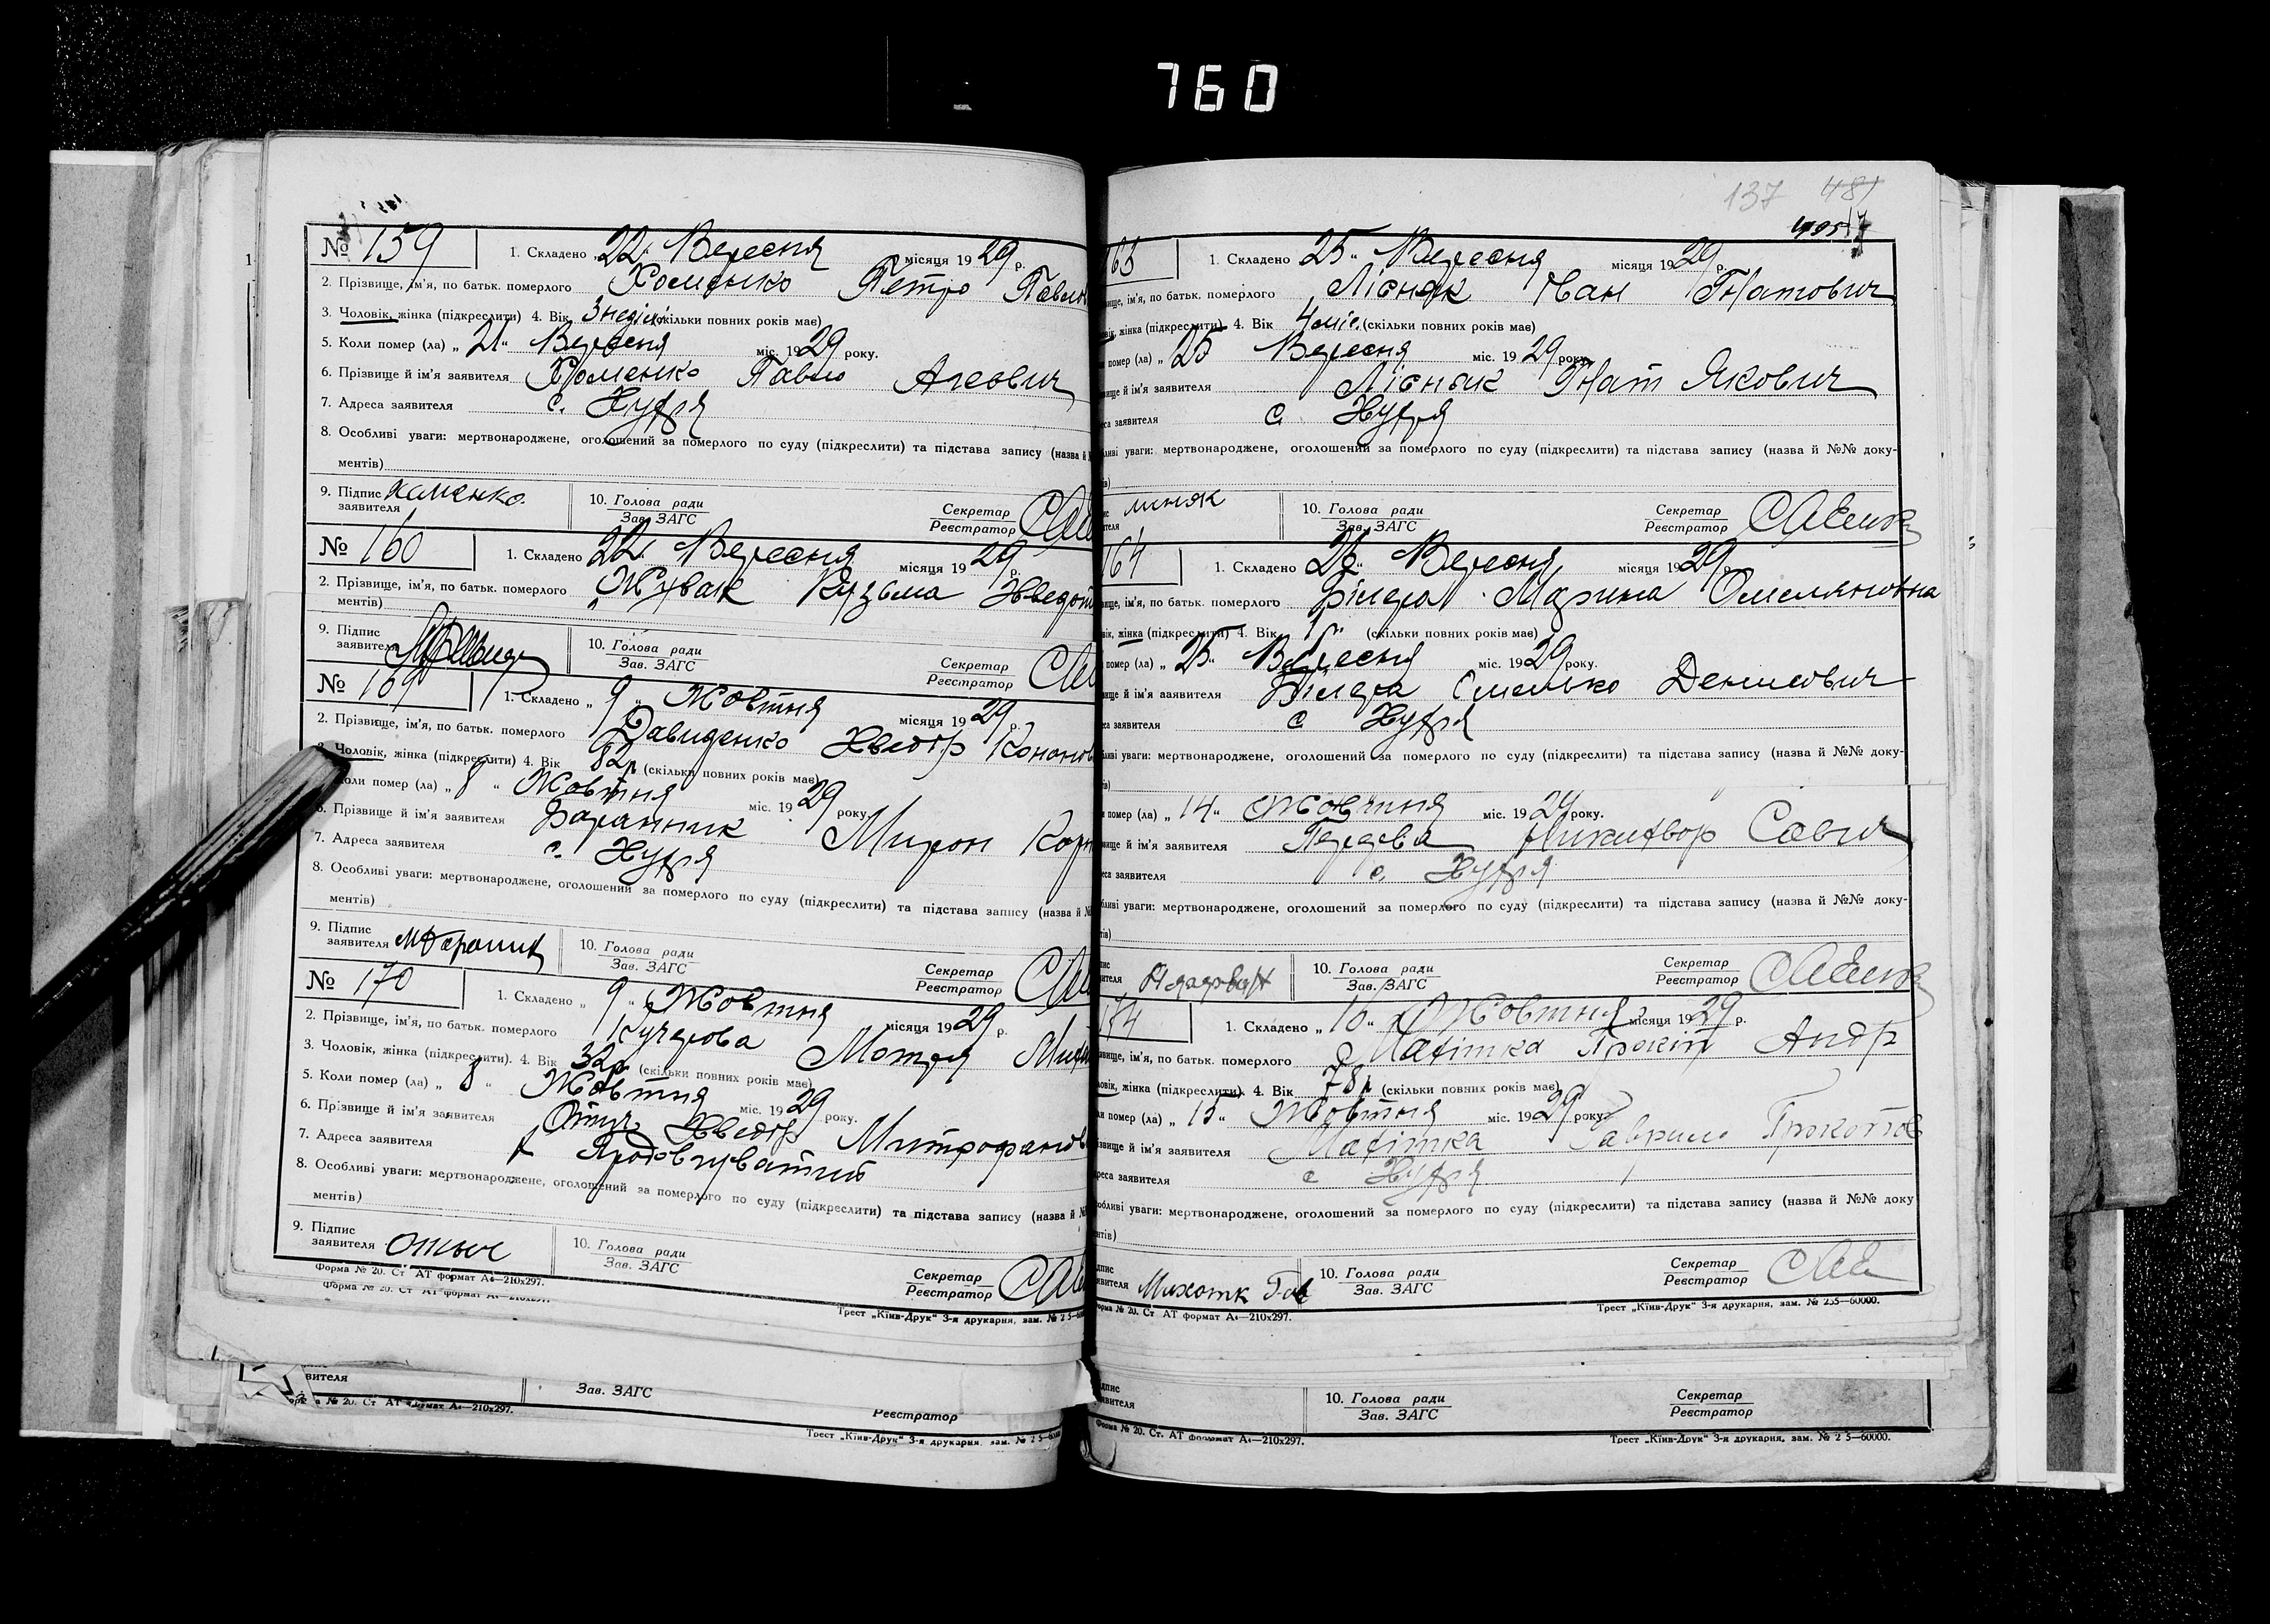 760
№ 159 1. Складено „22“ Вересня місяця 1929 р.
2. Прізвище, ім'я, по батьк. померлого Хоменко Петро Павло
3. Чоловік, жінка (підкреслити) 4. Вік 3 неділі (скільки повних років має)
5. Коли помер (ла) „21“ Вересня міс. 1929 року.
6. Прізвище й ім'я заявителя Хоменко Павло
7. Адреса заявителя с.
8. Особливі уваги: мертвонароджене, оголошений за померлого по суду (підкреслити) та підстава запису (назва й
ментів)
9. Підпис заявителя Хаменко 10. Голова ради Зав. ЗАГС Секретар Реєстратор
№ 160 1. Складено „22“ Вересня місяця 1929 р.
2. Прізвище, ім'я, по батьк. померлого Кузьма
ментів)
9. Підпис заявителя 10. Голова ради Зав. ЗАГС Секретар Реєстратор
№ 169 1. Складено „9“ Жовтня місяця 1929 р.
2. Прізвище, ім'я, по батьк. померлого Давиденко Хведір Кононов
Чоловік, жінка (підкреслити) 4. Вік 82 р (скільки повних років має)
Коли помер (ла) „8“ Жовтня міс. 1929 року
6. Прізвище й ім'я заявителя Баранник Мирон Корн
7. Адреса заявителя с.
8. Особливі уваги: мертвонароджене, оголошений за померлого по суду (підкреслити) та підстава запису (назва й №
ментів)
9. Підпис заявителя 10. Голова ради Зав. ЗАГС Секретар Реєстратор
№ 170 1. Складено „9“ Жовтня місяця 1929 р.
2. Прізвище, ім'я, по батьк. померлого Кучерова Мотря
3. Чоловік, жінка (підкреслити). 4. Вік 32р (скільки повних років має)
5. Коли помер (ла) „8“ Жовтня міс. 1929 року.
6. Прізвище й ім'я заявителя Хведір Митрофанов
7. Адреса заявителя
8. Особливі уваги: мертвонароджене, оголошений за померлого по суду (підкреслити) та підстава запису (назва й №
ментів)
9. Підпис заявителя 10. Голова ради Зав. ЗАГС Секретар Реєстратор
Форма № 20. Ст АТ формат А4—210х297.
Трест „Київ-Друк“ 3-я друкарня, зам. № 2 5—
вителя Зав. ЗАГС Реєстратор
№ 20. Ст АТ формат А4—210х297.
Трест „Київ-Друк“ 3-я друкарня, зам. № 2 5—60
137 481
163 1. Складено „25“ Вересня місяця 1929 р.
ім'я, по батьк. померлого Лісняк Іван Гнатович
жінка (підкреслити) 4. Вік 4 міс. (скільки повних років має)
помер (ла) „25 Вересня міс. 1929 року
й ім'я заявителя Лісняк Гнат Якович
заявителя с.
уваги: мертвонароджене, оголошений за померлого по суду (підкреслити) та підстава запису (назва й №№ доку-
10. Голова ради Зав. ЗАГС Секретар Реєстратор
164 1. Складено „26“ Вересня місяця 1929 р.
ім'я, по батьк. померлого Марина Омеляновна
жінка (підкреслити) 4. Вік 1 р (скільки повних років має)
помер (ла) „25“ Вересня міс. 1929 року.
й ім'я заявителя Омелько Денисович
заявителя с
уваги: мертвонароджене, оголошений за померлого по суду (підкреслити) та підстава запису (назва й №№ доку-
помер (ла) „14“ Жовтня міс. 1929 року.
й ім'я заявителя Савич
заявителя с.
уваги: мертвонароджене, оголошений за померлого по суду (підкреслити) та підстава запису (назва й №№ доку-
10. Голова ради Зав. ЗАГС Секретар Реєстратор
174 1. Складено „16“ Жовтня місяця 1929 р.
ім'я, по батьк. померлого Прокіп Андр
жінка (підкреслити). 4. Вік 78 р (скільки повних років має)
помер (ла) „15“ Жовтня міс. 1929 року
й ім'я заявителя Гаврило Прокопов
заявителя с
уваги: мертвонароджене, оголошений за померлого по суду (підкреслити) та підстава запису (назва й №№ доку
10. Голова ради Зав. ЗАГС Секретар Реєстратор
№ 20. Ст АТ формат А4—210х297.
Трест „Київ-Друк“ 3-я друкарня, зам. № 235—60000.
10. Голова ради Зав. ЗАГС Секретар Реєстратор
Форма № 20. Ст. АТ формат А4—210х297.
Трест „Київ-Друк“ 3-я друкарня, зам. № 2 5—60000.